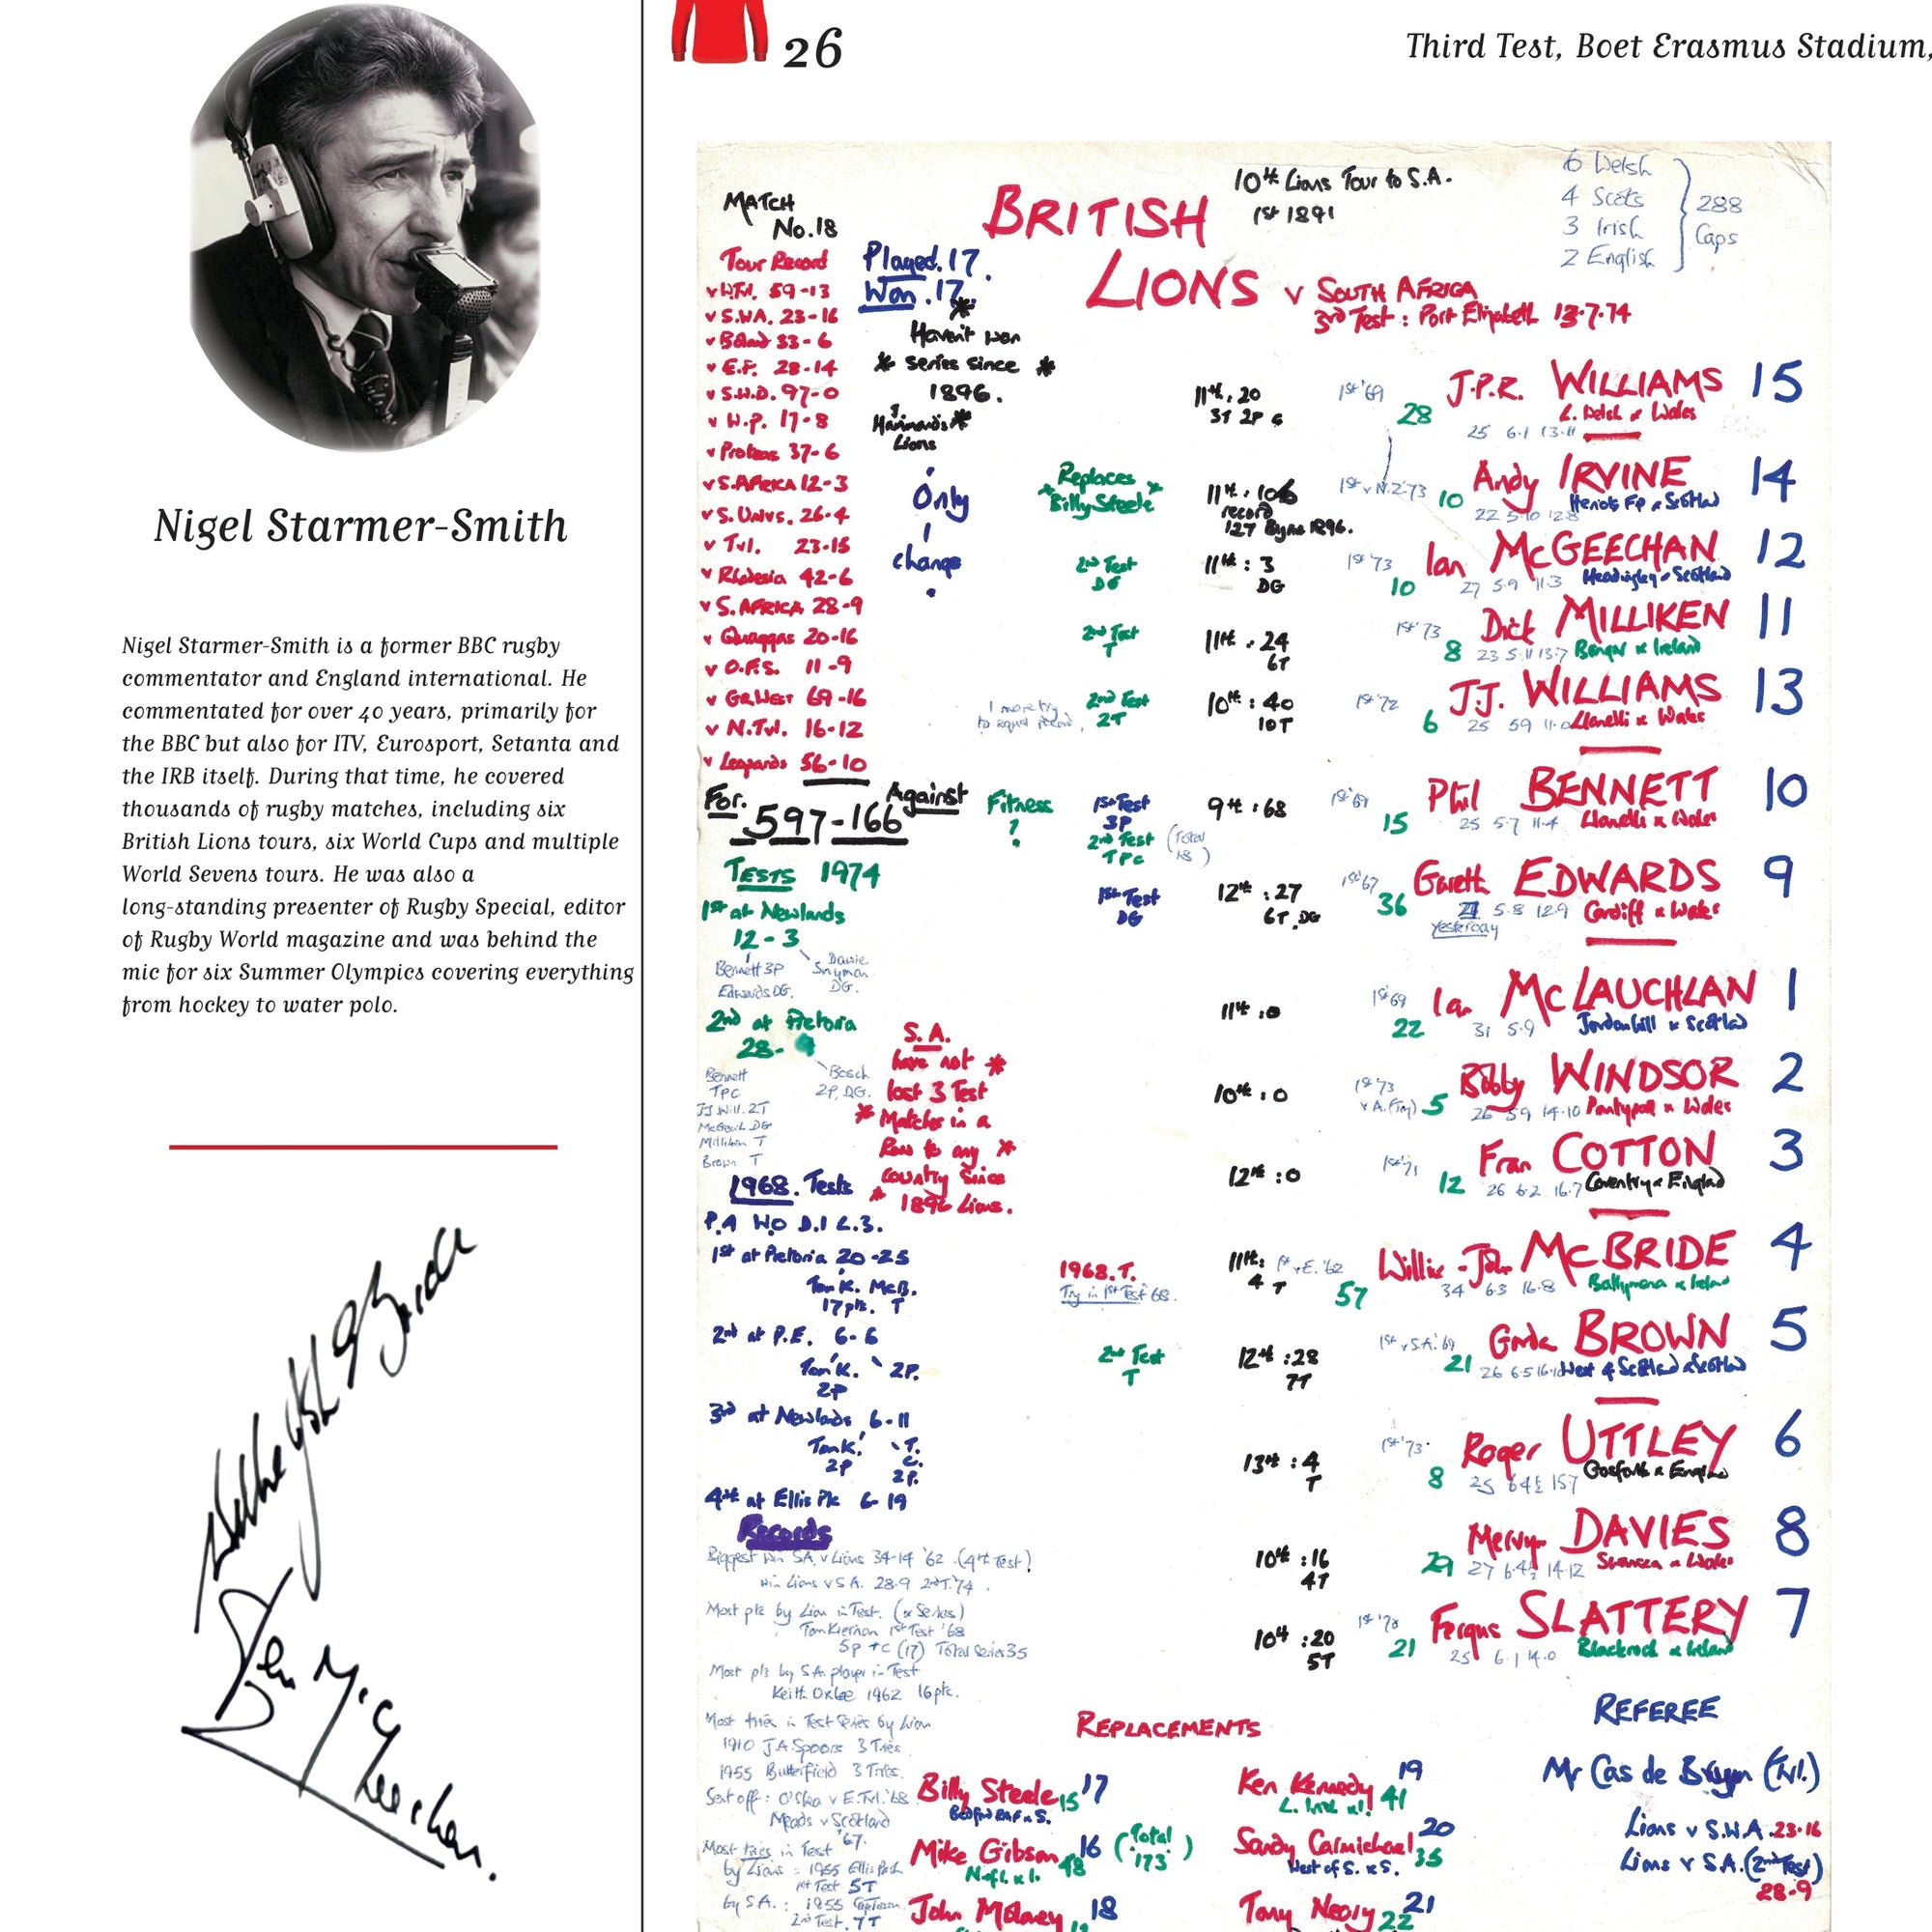 Nigel Starmer-Smith
Nigel Starmer-Smith is a former BBC rugby
commentator and England international. He
commentated for over 40 years, primarily for
the BBC but also for ITV, Eurosport, Setanta and
the IRB itself. During that time, he covered
thousands of rugby matches, including six
British Lions tours, six World Cups and multiple
World Sevens tours. He was also a
long-standing presenter of Rugby Special, editor
of Rugby World magazine and was behind the
mic for six Summer Olympics covering everything
from hockey to water polo.
26
Third Test, Boet Erasmus Stadium,
MATCH
No.18
BRITISH
LIONS v SOUTH AFRICA
3rd Test: Port Elizabeth 13.7.74
10th Lions Tour to S.A.
1st 1891
6 Welsh
4 Scots
3 Irish
2 English
288
Caps
Tour Record
v W.Tvl. 59-13
v S.WA. 23-16
v Boland 33-6
v E.P. 28-14
v S.W.D. 97-0
v W.P. 17-8
v Proteas 37-6
v S.AFRICA 12-3
v S. Univs. 26-4
v Tvl. 23-15
v Rhodesia 42-6
v S. AFRICA 28-9
v Quaggas 20-16
v O.F.S. 11-9
v GR.WEST 69-16
v N.Tvl. 16-12
v Leopards 56-10
For. Against
597-166
Played.17.
Won.17.
Haven't won
* series since *
1896.
Lions
Only
1
change
TESTS 1974
1st at Newlands
12-3
Bennett 3P
Edwards DG.
Dawie
Snyman
DG.
2nd at Pretoria
28-9
Bennett
TPC
JJ Will. 2T
McGeech DG
Milliken T
Brown T
Bosch
2P.DG.
S.A.
have not *
lost 3 Test
* Matches in a
Row to any *
country since
* 1896 Lions.
1968. Tests
P.4 WO D.1 L.3.
1st at Pretoria 20-25
Tom K. McB.
17pts. T
2nd at P.E. 6-6
Tom K. 2P.
2P
3rd at Newlands 6-11
Tom K. T.
2P C.
2P.
4th at Ellis Pk 6-19
Records
Biggest win SA v Lions 34-14 '62. (4th Test)
win Lions v S.A. 28-9 2nd T.'74.
Most pts by Lion in Test. (or Series)
Tom Kiernan 1st Test '68
5p +c (17) Total Series 35
Most pts by S.A. player in Test
Keith Oxlee 1962 16pts.
Most tries in Test Series by Lion
1910 J.A.Spoors 3 Tries.
1955 Butterfield 3 Tries.
Sent off: O'Shea v E.Tvl.'68
Meads v Scotland
'67.
Most tries in Test
by Lions: 1955 Ellis Park
1st Test 5T
by S.A.: 1955
2nd Test. 7T
11th. 20
3T 2P
1st '69
28
J.P.R. WILLIAMS 15
L. Welsh & Wales
25 6.1 13.11
Replaces
Billy Steele
11th. 106
record
127 Byrne 1896.
1st v N.Z.'73
10
Andy IRVINE 14
Heriots FP & Scotland
22 5.10 12.8
2nd Test
DG
11th: 3
DG
1st '73
10
Ian McGEECHAN 12
Headingley & Scotland
27 5.9 11.3
2nd Test
T
11th. 24
6T
1st '73
8
Dick MILLIKEN 11
23 5.11 13.7 Bangor & Ireland
1 more try
to equal record.
2nd Test
2T
10th: 40
10T
1st '72
6
J.J. WILLIAMS 13
25 5.9 11.0 Llanelli & Wales
Fitness
?
1st Test
3P
2nd Test
TPC
(Total
18)
9th: 68
1st '69
15
Phil BENNETT 10
25 5.7 11.4 Llanelli & Wales
1st Test
DG
12th: 27
6T, DG
1st '67
36
Gareth EDWARDS 9
5.8 12.9 Cardiff & Wales
Yesterday
11th: 0
1st '69
22
Ian McLAUCHLAN 1
31 5.9 Jordanhill & Scotland
10th: 0
1st '73
5
Bobby WINDSOR 2
26 5.9 14.10 Pontypool & Wales
12th: 0
1st '71
12
Fran COTTON 3
26 6.2 16.7 Coventry & England
1968.T.
Try in 1st Test '68.
11th:
4 T
1st v E.'62
57
Willie-John McBRIDE 4
34 6.3 16.8 Ballymena & Ireland
2nd Test
T
12th: 28
7T
1st v S.A.'69
21
Gordon BROWN 5
26 6.5 West of Scotland & Scotland
13th: 4
T
1st '73
8
Roger UTTLEY 6
Gosforth & England
25 6.4½ 15.7
10th: 16
4T
29
Mervyn DAVIES 8
27 6.4½ 14.12 Swansea & Wales
10th: 20
5T
1st '70
21
Fergus SLATTERY 7
25 6.1 14.0 Blackrock & Ireland
REPLACEMENTS
Billy Steele 15 17
Mike Gibson 48 16 (Total 173)
N.of I. & I.
John Moloney 18
Ken Kennedy 41 19
L. Irish & I.
Sandy Carmichael 35 20
West of S. & S.
Tony Neary 22 21
REFEREE
Mr Cas de Bruyn (Tvl.)
Lions v S.W.A. 23-16
Lions v S.A. (2nd Test)
28-9
Willie John McBride
Ian McGeechan.